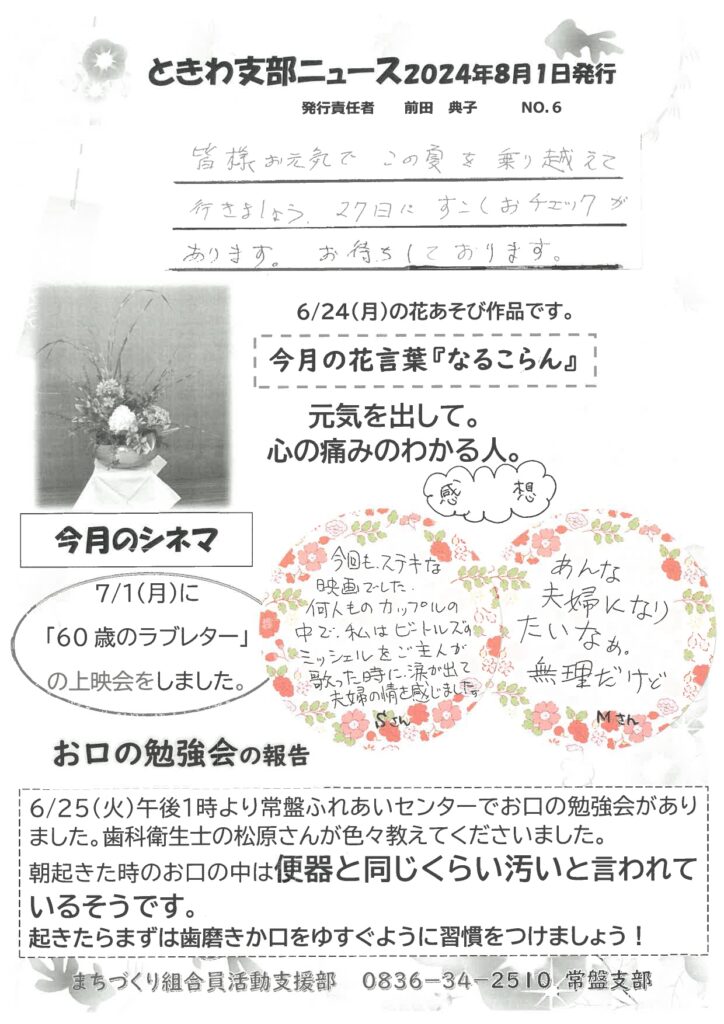 ときわ支部ニュース2024年8月1日発行
発行責任者　前田　典子　NO.6
皆様お元気で この夏を 乗り越えて
行きましょう。27日に すこしおチェックが
あります。 お待ちしております。
6/24(月)の花あそび作品です。
今月の花言葉『なるこらん』
元気を出して。
心の痛みのわかる人。
感　想
今月のシネマ
7/1(月)に
「60歳のラブレター」
の上映会をしました。
今回も、ステキな
映画でした。
何人ものカップルの
中で、私はビートルズの
ミッシェルをご主人が
歌った時に、涙が出て
夫婦の情を感じました。
Sさん
あんな
夫婦になり
たいなぁ。
無理だけど
Mさん
お口の勉強会の報告
6/25(火)午後1時より常盤ふれあいセンターでお口の勉強会があり
ました。歯科衛生士の松原さんが色々教えてくださいました。
朝起きた時のお口の中は便器と同じくらい汚いと言われて
いるそうです。
起きたらまずは歯磨きか口をゆすぐように習慣をつけましょう！
まちづくり組合員活動支援部　0836-34-2510 常盤支部